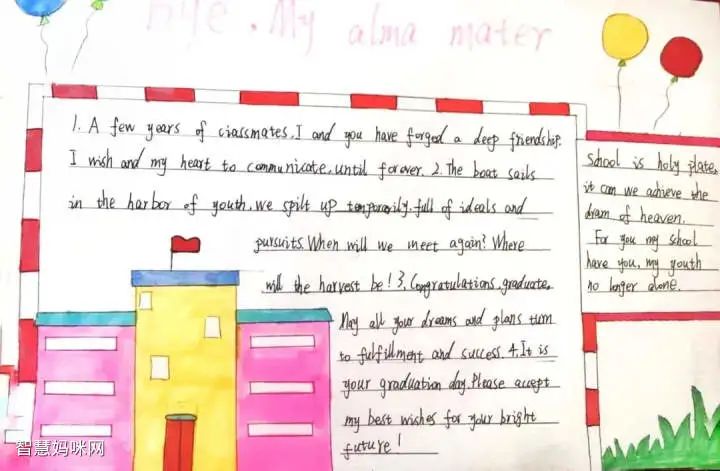 Bye. My alma mater
1. A few years of ciassmates, I and you have forged a deep friendship.
I wish and my heart to communicate, until forover. 2. The boat sails
in the harbor of youth, we spilt up temporarily. full of ideals and
pursuits. When will we meet again? Where
will the harvest be! 3. Congratulations, graduate.
May all your dreams and plans turn
to fulfillment and success. 4. It is
your graduation day. Please accept
my best wishes for your bright
future!
School is holy plate,
it can we achieve the
dram of heaven.
For you my school
have you, my youth
no longer alone.
智慧妈咪网